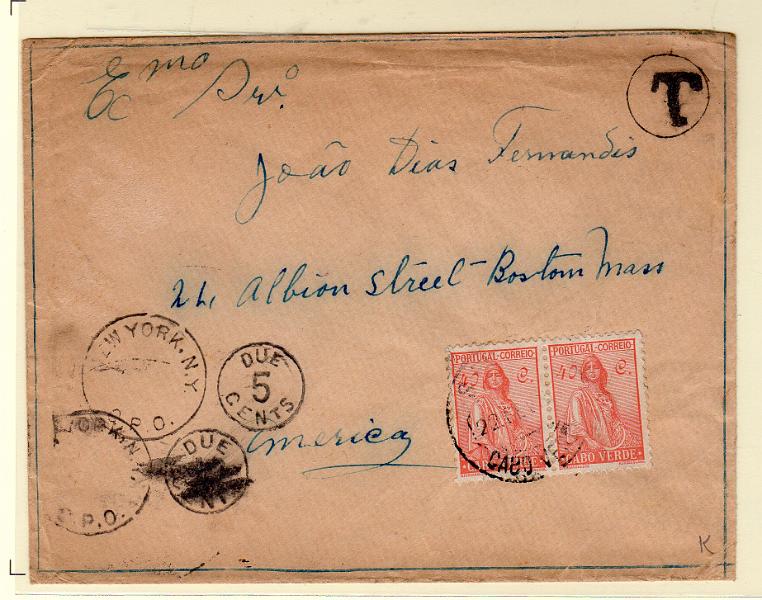 Ec mo Snr.
T
João Dias Fernandis
24 Albion Street - Boston Mass
America
NEW YORK, N.Y.
G.P.O.
DUE
5
CENTS
YORK, N.
P.O.
DUE
CENTS
PORTUGAL-CORREIO
40 C.
CABO VERDE
PORTUGAL-CORREIO
40 C.
CABO VERDE
22
CABO VE
K